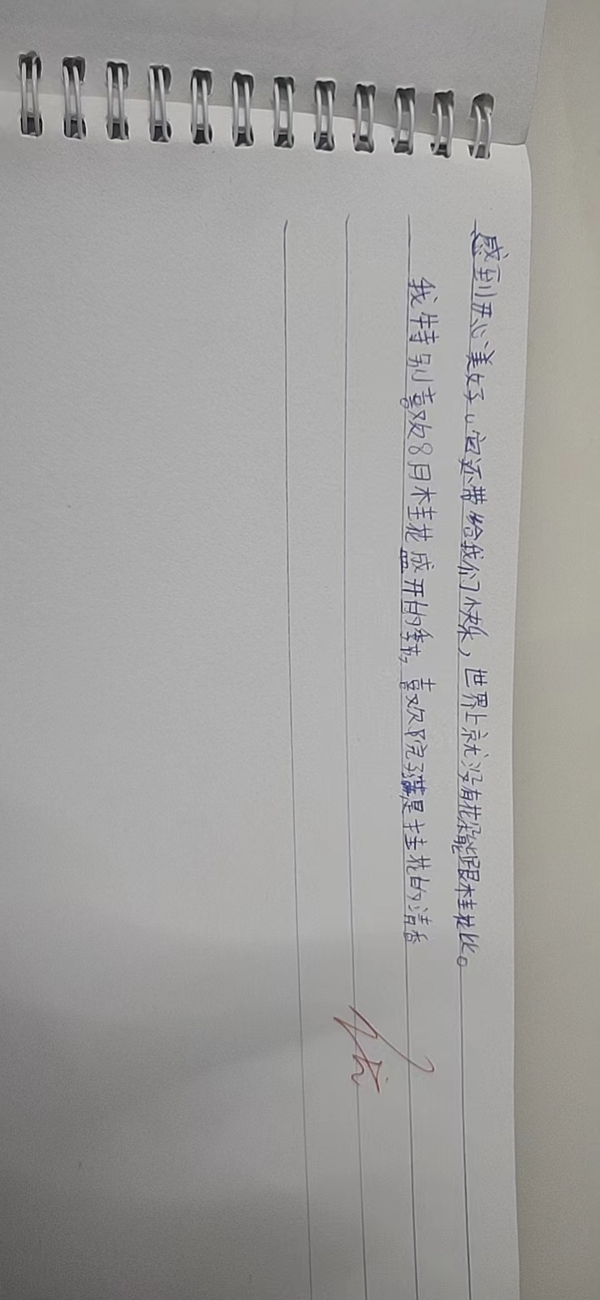 感到开心美好。它还带给我们快乐，世界上就没有花能跟桂花比。
我特别喜欢8月桂花盛开的季节，喜欢院子满是桂花的清香